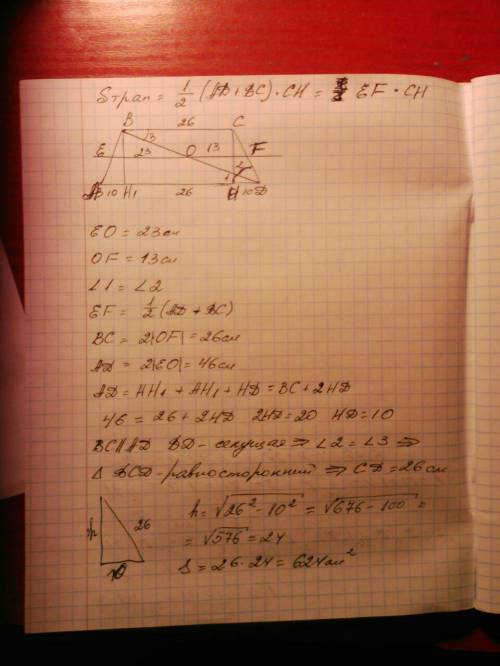 Sтрап = 1/2 (AD + BC) · CH = EF · CH
B 26 C
3
E 23 O 13 F
2
1
A 10 H₁ 26 H 10 D
EO = 23 см
OF = 13 см
∠1 = ∠2
EF = 1/2 (AD + BC)
BC = 2|OF| = 26 см
AD = 2|EO| = 46 см
AD = HH₁ + AH₁ + HD = BC + 2HD
46 = 26 + 2HD 2HD = 20 HD = 10
BC || AD BD - секущая ⇒ ∠2 = ∠3 ⇒
Δ BCD - равносторонний ⇒ CD = 26 см
h 26
10
h = √26² - 10² = √676 - 100 =
= √576 = 24
S = 26 · 24 = 624 см²